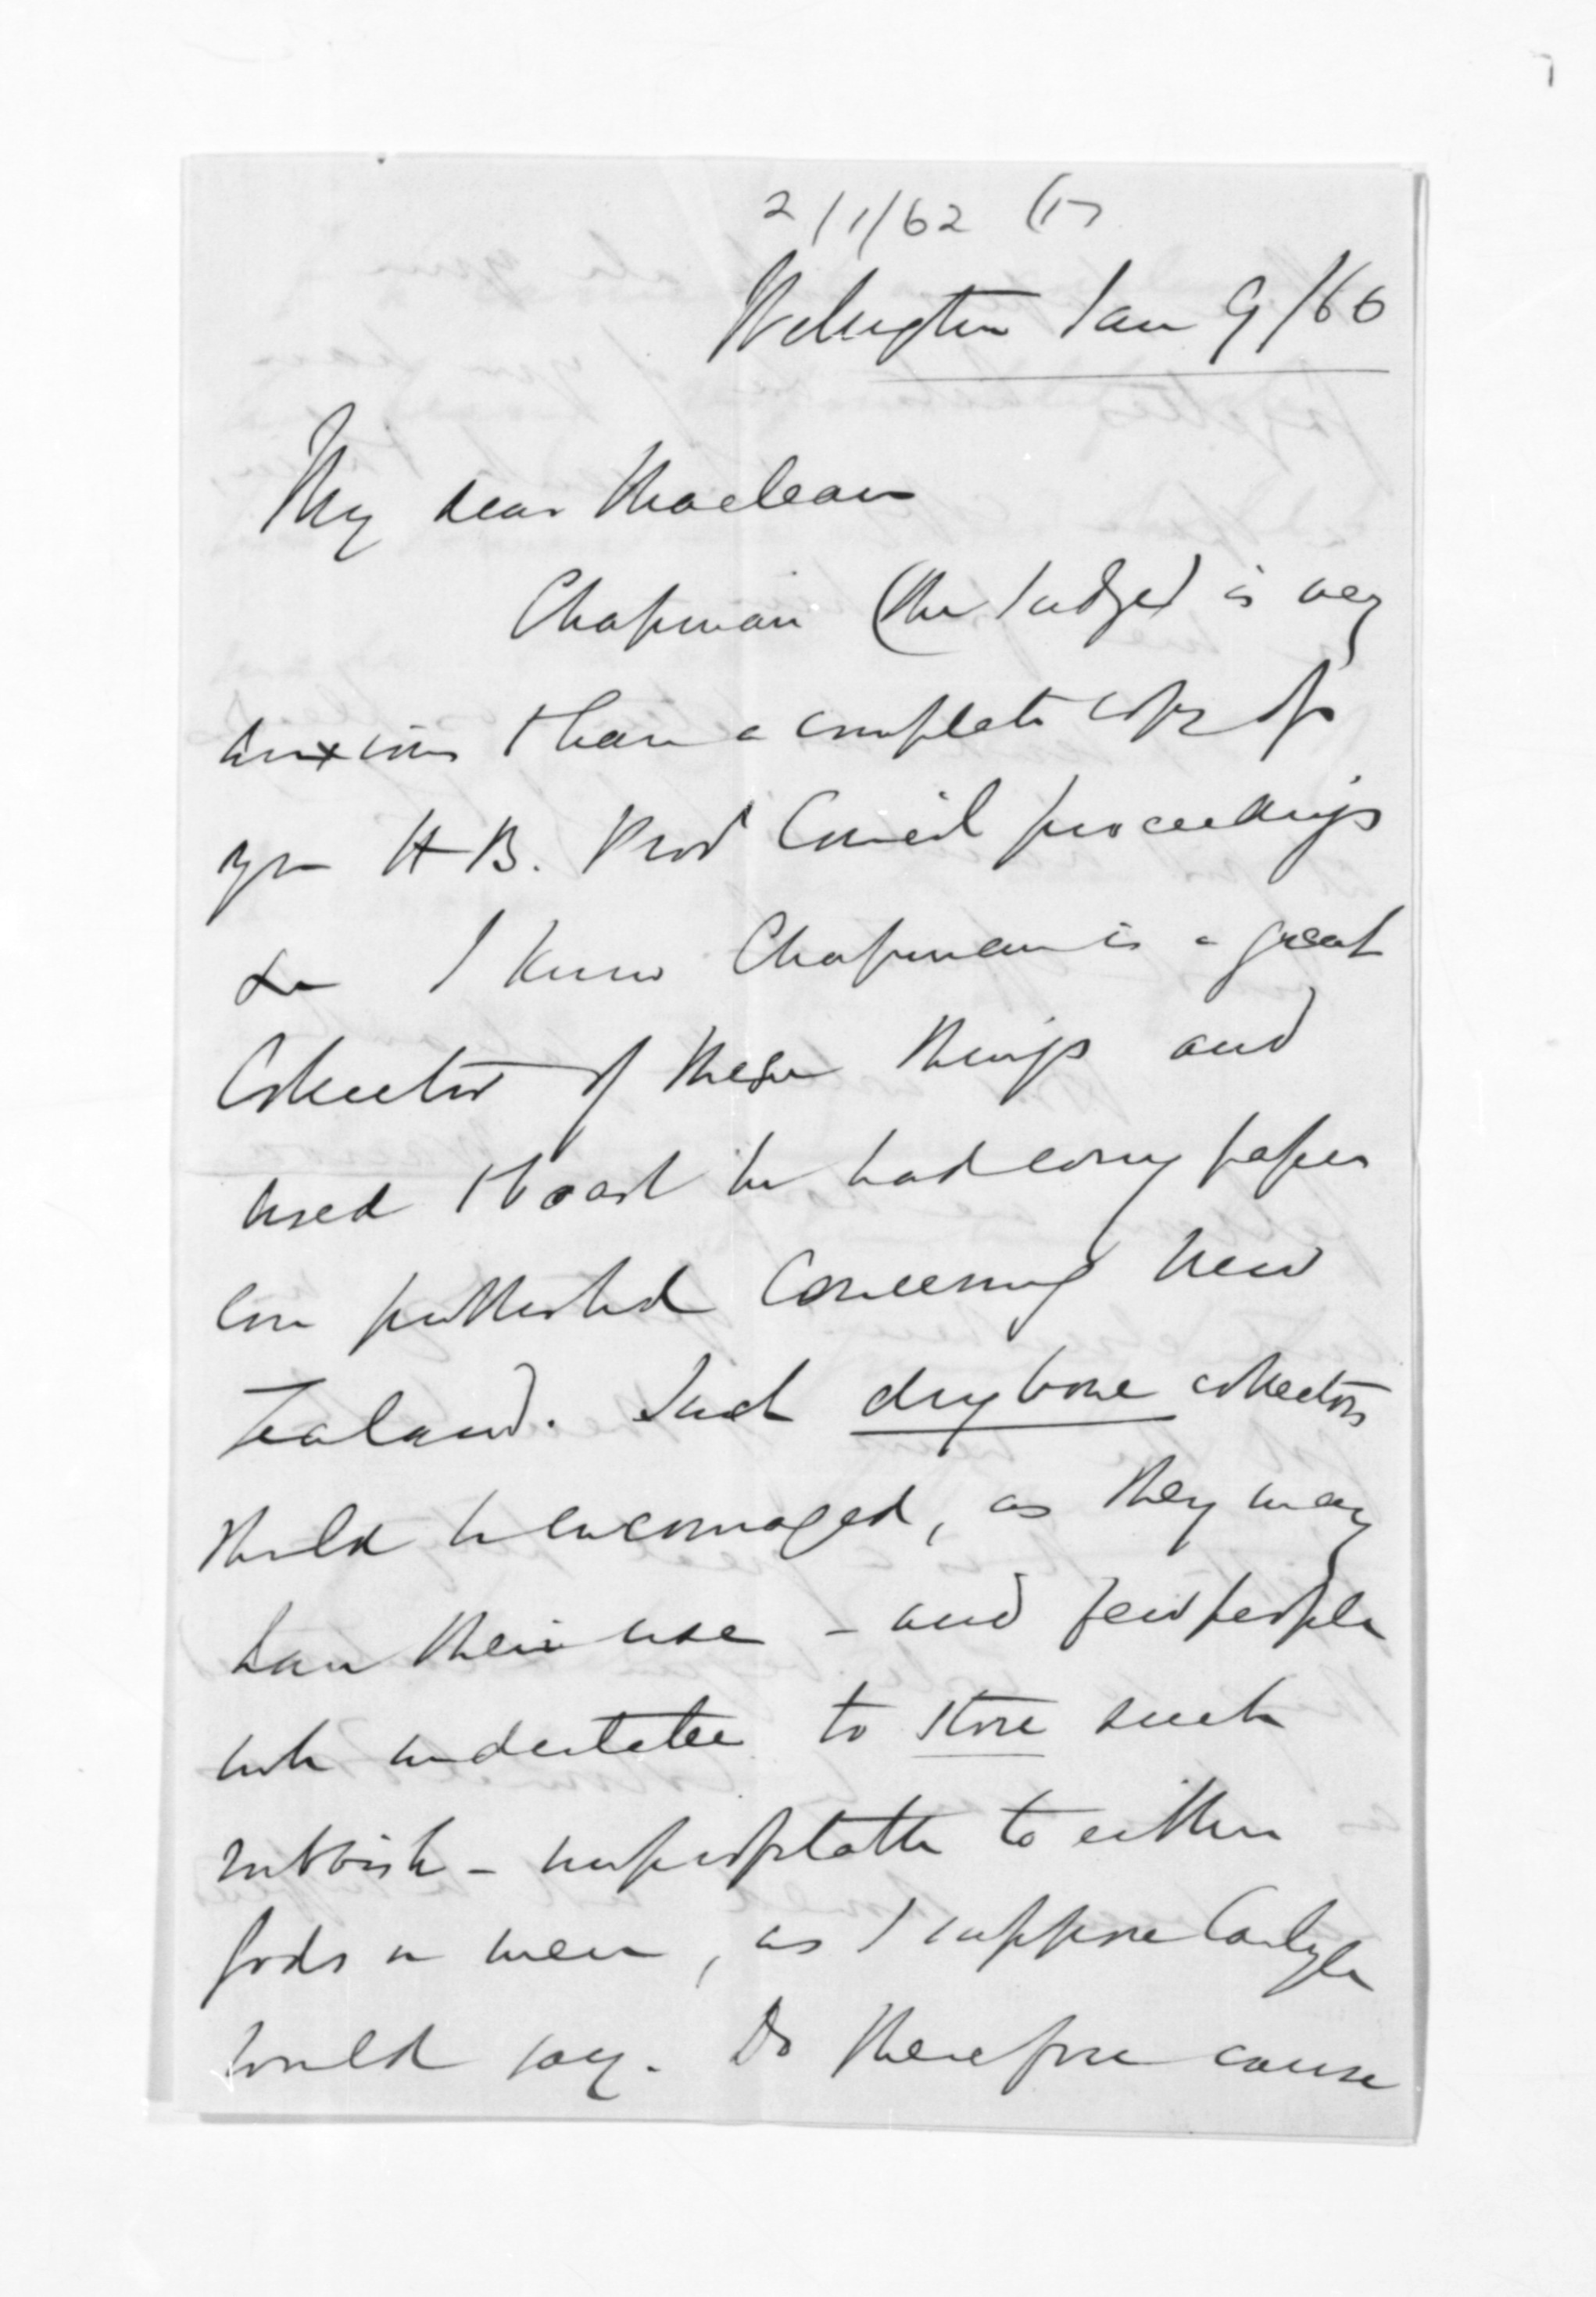 2/1/62 (17
Wellington Jan 9/66
My dear Maclean
Chapman (the Judge) is very
anxious to have a complete copy of
yr H B. Prov Council proceedings
&c I know Chapman is a great
Collector of these things and
used to boast he had every paper
ever published concerning New
Zealand. Such dry bone collectors
should be encouraged, as they may
have their use - and few people
will undertake to store such
rubbish - unprofitable to either
Gods or men, as I suppose Carlyle
would say. Do therefore cause